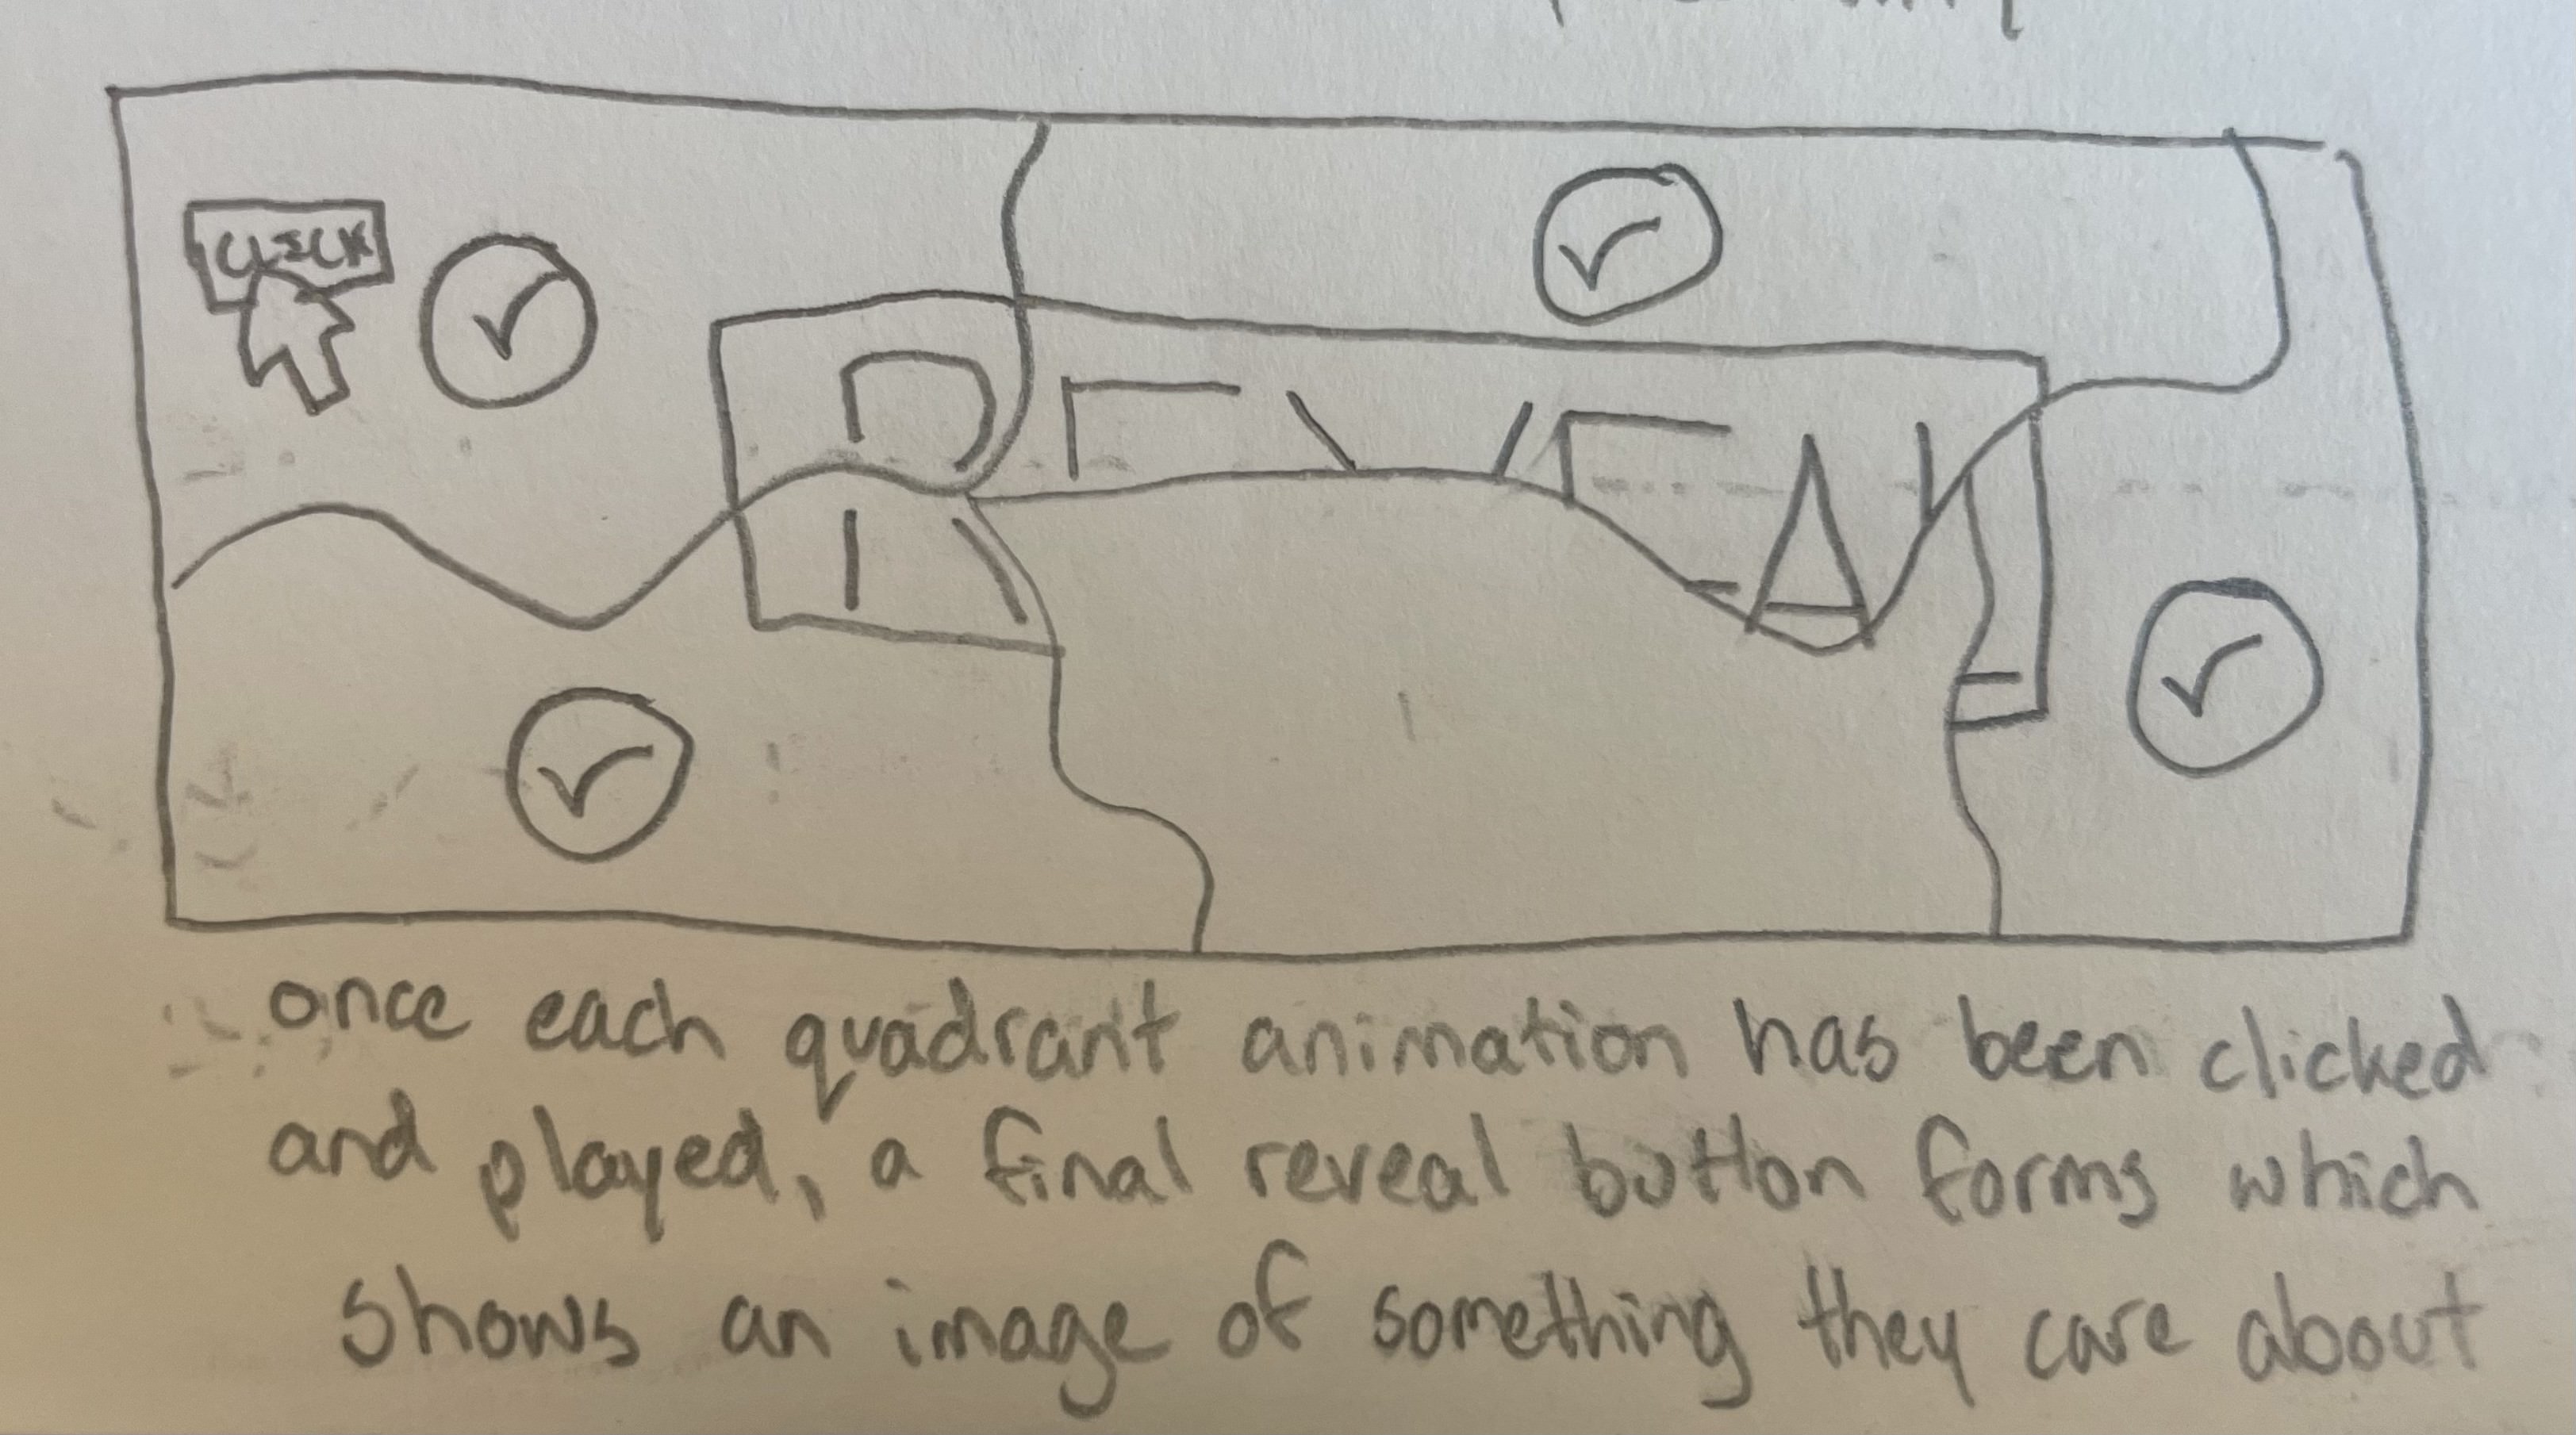 CLICK
once each quadrant animation has been clicked
and played, a final reveal button forms which
shows an image of something they care about